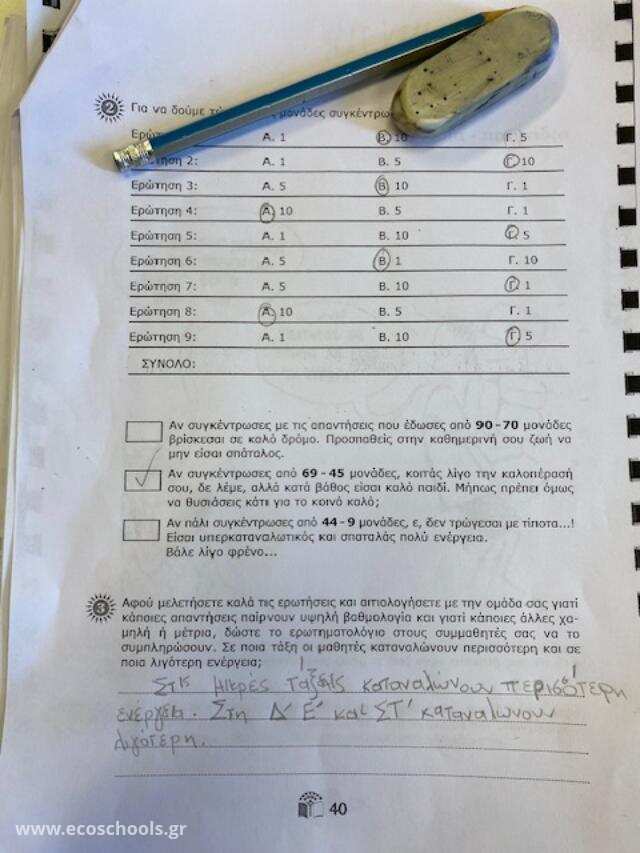 2 Για να δούμε μονάδες συγκέντρω
Ερώ Α. 1 Β. 10 Γ. 5
τηση 2: Α. 1 Β. 5 Γ. 10
Ερώτηση 3: Α. 5 Β. 10 Γ. 1
Ερώτηση 4: Α. 10 Β. 5 Γ. 1
Ερώτηση 5: Α. 1 Β. 10 Γ. 5
Ερώτηση 6: Α. 5 Β. 1 Γ. 10
Ερώτηση 7: Α. 5 Β. 10 Γ. 1
Ερώτηση 8: Α. 10 Β. 5 Γ. 1
Ερώτηση 9: Α. 1 Β. 10 Γ. 5
ΣΥΝΟΛΟ:
Αν συγκέντρωσες με τις απαντήσεις που έδωσες από 90 - 70 μονάδες
βρίσκεσαι σε καλό δρόμο. Προσπαθείς στην καθημερινή σου ζωή να
μην είσαι σπάταλος.
Αν συγκέντρωσες από 69 - 45 μονάδες, κοιτάς λίγο την καλοπέρασή
σου, δε λέμε, αλλά κατά βάθος είσαι καλό παιδί. Μήπως πρέπει όμως
να θυσιάσεις κάτι για το κοινό καλό;
Αν πάλι συγκέντρωσες από 44 - 9 μονάδες, ε, δεν τρώγεσαι με τίποτα...!
Είσαι υπερκαταναλωτικός και σπαταλάς πολύ ενέργεια.
Βάλε λίγο φρένο...
3 Αφού μελετήσετε καλά τις ερωτήσεις και αιτιολογήσετε με την ομάδα σας γιατί
κάποιες απαντήσεις παίρνουν υψηλή βαθμολογία και γιατί κάποιες άλλες χα-
μηλή ή μέτρια, δώστε το ερωτηματολόγιο στους συμμαθητές σας να το
συμπληρώσουν. Σε ποια τάξη οι μαθητές καταναλώνουν περισσότερη και σε
ποια λιγότερη ενέργεια;
Στις μικρές τάξεις καταναλώνουν περισσότερη
ενέργεια. Στη Δ΄ Ε΄ και ΣΤ΄ καταναλωνουν
λιγότερη.
40
www.ecoschools.gr